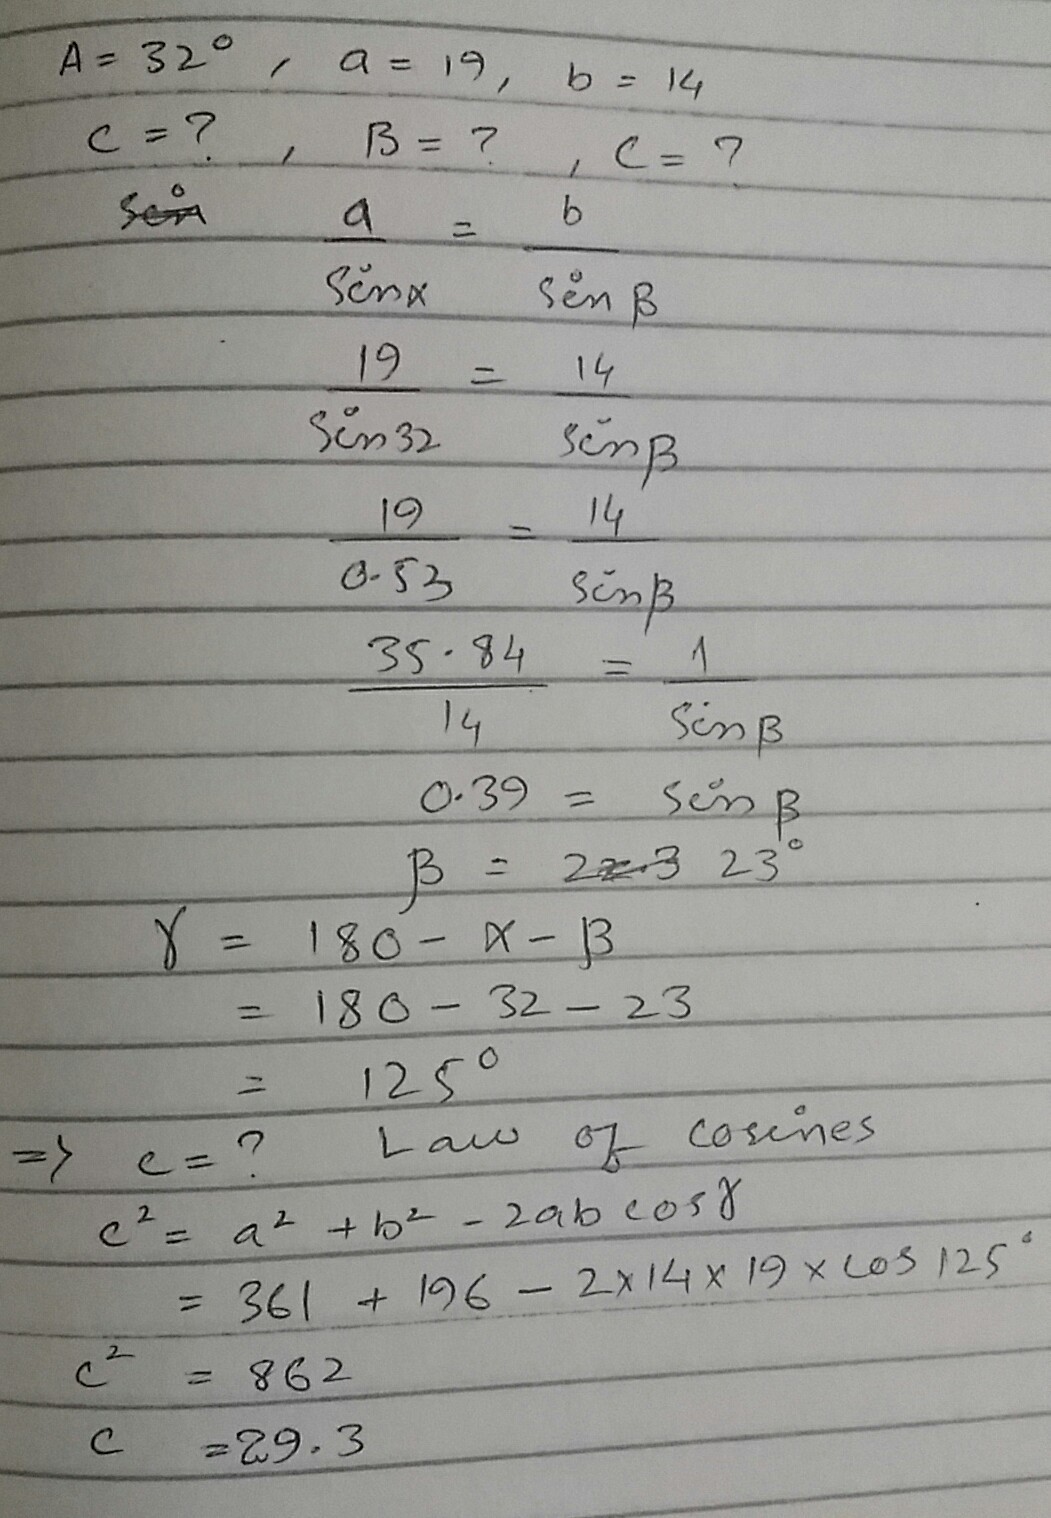 A = 32°, a = 19, b = 14
c = ?, B = ?, C = ?
sin a = b
sinα sin β
19 = 14
sin 32 sin β
19 = 14
0.53 sin β
35.84 = 1
14 sin β
0.39 = sin β
β = 22.3 23°
γ = 180 - α - β
= 180 - 32 - 23
= 125°
=> c = ? Law of cosines
c² = a² + b² - 2ab cos γ
= 361 + 196 - 2 x 14 x 19 x cos 125°
c² = 862
c = 29.3